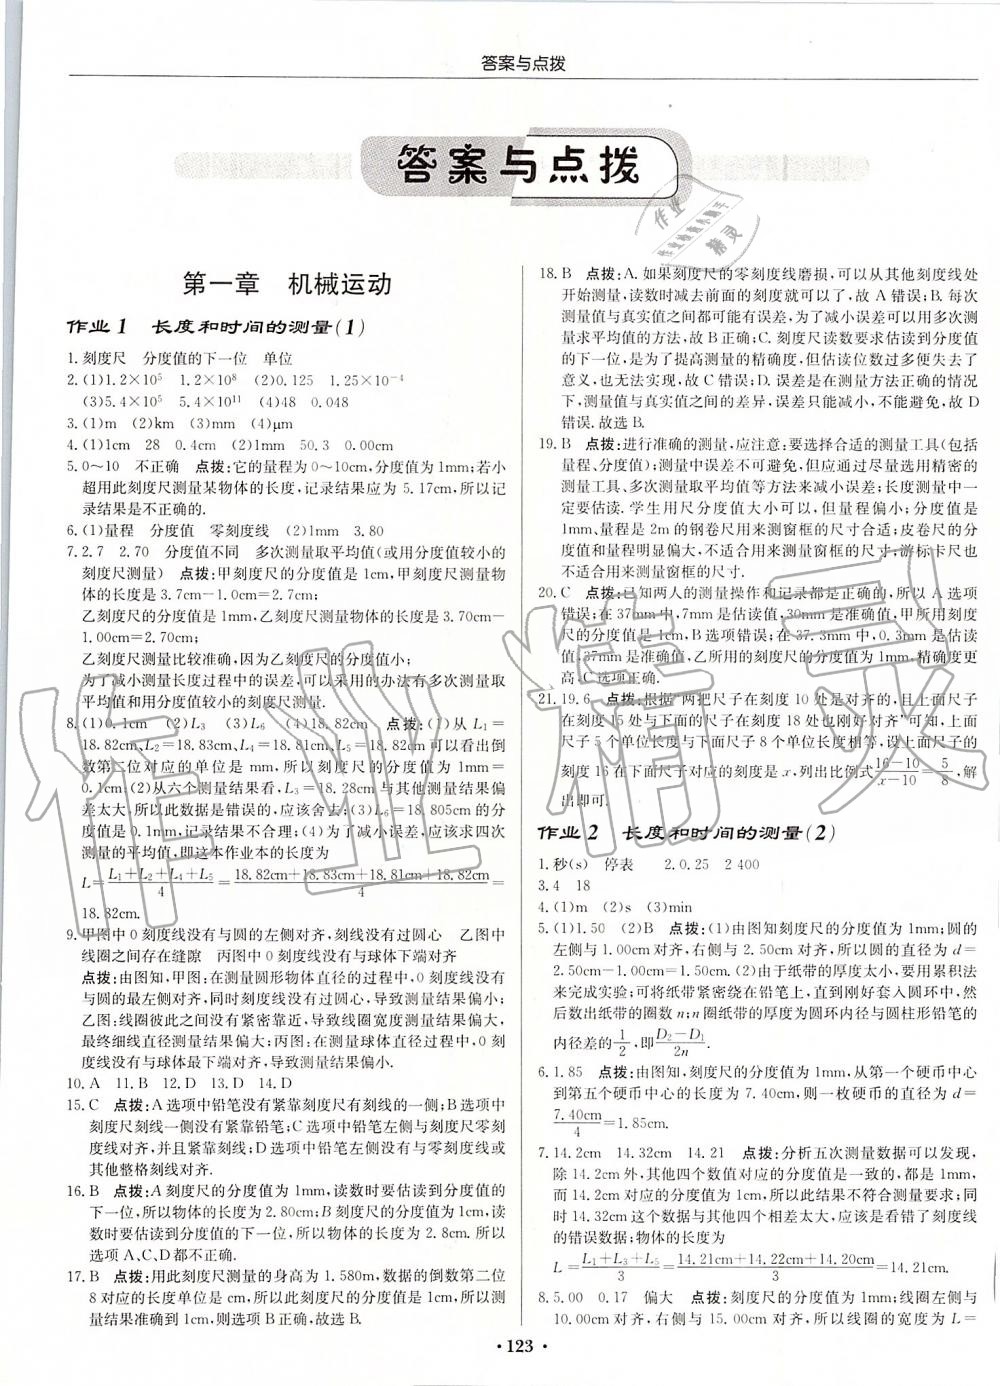 答案与点拨
答案与点拨
第一章　机械运动
作业1　长度和时间的测量(1)
1.刻度尺　分度值的下一位　单位
2.(1)1.2×10⁵　1.2×10⁸　(2)0.125　1.25×10⁻⁴
(3)5.4×10⁵　5.4×10¹¹　(4)48　0.048
3.(1)m　(2)km　(3)mm　(4)μm
4.(1)1cm　28　0.4cm　(2)1mm　50.3　0.00cm
5.0~10　不正确　点拨:它的量程为0~10cm,分度值为1mm;若小
超用此刻度尺测量某物体的长度,记录结果应为5.17cm,所以记
录结果是不正确的.
6.(1)量程　分度值　零刻度线　(2)1mm　3.80
7.2.7　2.70　分度值不同　多次测量取平均值(或用分度值较小的
刻度尺测量)　点拨:甲刻度尺的分度值是1cm,甲刻度尺测量物
体的长度是3.7cm-1.0cm=2.7cm;
乙刻度尺的分度值是1mm,乙刻度尺测量物体的长度是3.70cm-
1.00cm=2.70cm;
乙刻度尺测量比较准确,因为乙刻度尺的分度值小;
为了减小测量长度过程中的误差,可以采用的办法有多次测量取
平均值和用分度值较小的刻度尺测量.
8.(1)0.1cm　(2)L₃　(3)L₆　(4)18.82cm　点拨:(1)从L₁=
18.82cm、L₂=18.83cm、L₄=18.81cm、L₅=18.82cm可以看出倒
数第二位对应的单位是mm,所以刻度尺的分度值是1mm=
0.1cm;(2)从六个测量结果看,L₃=18.28cm与其他测量结果偏
差太大,所以此数据是错误的,应该舍去;(3)L₆=18.805cm的分
度值是0.1mm,记录结果不合理;(4)为了减小误差,应该求四次
测量的平均值,即这本作业本的长度为
L=(L₁+L₂+L₄+L₅)/4=(18.82cm+18.83cm+18.81cm+18.82cm)/4=
18.82cm.
9.甲图中0刻度线没有与圆的左侧对齐,刻度线没有过圆心　乙图中
线圈之间存在缝隙　丙图中0刻度线没有与球体下端对齐
点拨:由图知,甲图:在测量圆形物体直径的过程中,0刻度线没有
与圆的最左侧对齐,同时刻度线没有过圆心,导致测量结果偏小;
乙图:线圈彼此之间没有紧密靠近,导致线圈宽度测量结果偏大,
最终细线直径测量结果偏大;丙图:在测量球体直径过程中,0刻
度线没有与球体最下端对齐,导致测量结果偏小.
10.A　11.B　12.D　13.D　14.D
15.C　点拨:A选项中铅笔没有紧靠刻度尺有刻线的一侧;B选项中
刻度尺刻线没有紧贴铅笔;C选项中铅笔左侧与刻度尺零刻
度线对齐,并且紧靠刻线;D选项中铅笔左侧没有与零刻度线或
其他整格刻线对齐.
16.B　点拨:A刻度尺的分度值为1mm,读数时要估读到分度值的
下一位,所以物体的长度为2.80cm;B刻度尺的分度值为1cm,读
数时要估读到分度值的下一位,所以物体的长度为2.8cm.所以
选项A、C、D都不正确.
17.B　点拨:用此刻度尺测量的身高为1.580m,数据的倒数第二位
8对应的长度单位是cm,所以此刻度尺的分度值是1cm,所以测
量结果准确到1cm,则选项B正确,故选B.
18.B　点拨:A.如果刻度尺的零刻度线磨损,可以从其他刻度线处
开始测量,读数时减去前面的刻度就可以了,故A错误;B.每次
测量值与真实值之间都可能有误差,为了减小误差可以用多次测
量求平均值的方法,故B正确;C.刻度尺读数要求估读到分度值
的下一位,是为了提高测量的精确度,但估读位数过多便失去了
意义,也无法实现,故C错误;D.误差是在测量方法正确的情况
下,测量值与真实值之间的差异,误差只能减小,不能避免,故D
错误.故选B.
19.B　点拨:进行准确的测量,应注意:要选择合适的测量工具(包括
量程、分度值);测量中误差不可避免,但可通过尽量选用精密的
测量工具、多次测量取平均值等方法来减小误差;长度测量中一
定要估读.学生用尺分度值大小可以,但量程偏小;分度值是
1mm、量程是2m的钢卷尺用来测窗框的尺寸合适;皮卷尺的分
度值和量程明显偏大,不适合用来测量窗框的尺寸;游标卡尺也
不适合用来测量窗框的尺寸.
20.C　点拨:已知两人的测量操作和记录都是正确的,所以A选项
错误;在37mm中,7mm是估读值,30mm是准确值,甲所用刻度
尺的分度值是1cm,B选项错误;在37.3mm中,0.3mm是估读
值,37mm是准确值,乙所用的刻度尺的分度值为1mm,精确度更
高,C选项正确.
21.19.6　点拨:根据“两把尺子在刻度10处是对齐的,且上面尺子
在刻度15处与下面的尺子在刻度18处也刚好对齐”可知,上面
尺子5个单位长度与下面尺子8个单位长度相等,设上面尺子的
刻度16在下面尺子对应的刻度是x,列出比例式(16-10)/(x-10)=5/8,解
出即可.
作业2　长度和时间的测量(2)
1.秒(s)　停表　2.0.25　2400
3.4　18
4.(1)m　(2)s　(3)min
5.(1)1.50　(2)B　点拨:(1)由图知刻度尺的分度值为1mm;圆的
左侧与1.00cm对齐,右侧与2.50cm对齐,所以圆的直径为d=
2.50cm-1.00cm=1.50cm.(2)由于纸带的厚度太小,要用累积法
来完成实验;可将纸带紧密绕在铅笔上,直到刚好套入圆环中,然
后数出纸带的圈数n;n圈纸带的厚度为圆环内径与圆柱形铅笔的
内径差的1/2,即(D₂-D₁)/2n.
6.1.85　点拨:由图知,刻度尺的分度值为1mm,从第一个硬币中心
到第五个硬币中心的长度为7.40cm,则一枚硬币的直径为d=
7.40cm/4=1.85cm.
7.14.2cm　14.32cm　14.21　点拨:分析五次测量数据可以发现,
除14.2cm外,其他四个数值对应的分度值是一致的,都是1mm,
而14.2cm对应的分度值为1cm,所以此结果不符合测量要求;同
时14.32cm这个数据与其他四个相差太大,应该是看错了刻度线
的错误数据;物体的长度为
L=(L₁+L₃+L₅)/3=(14.21cm+14.22cm+14.20cm)/3=14.21cm.
8.5.00　0.17　偏大　点拨:刻度尺的分度值为1mm;线圈左侧与
10.00cm对齐,右侧与15.00cm对齐,所以线圈的宽度为L=
·123·
作业精灵